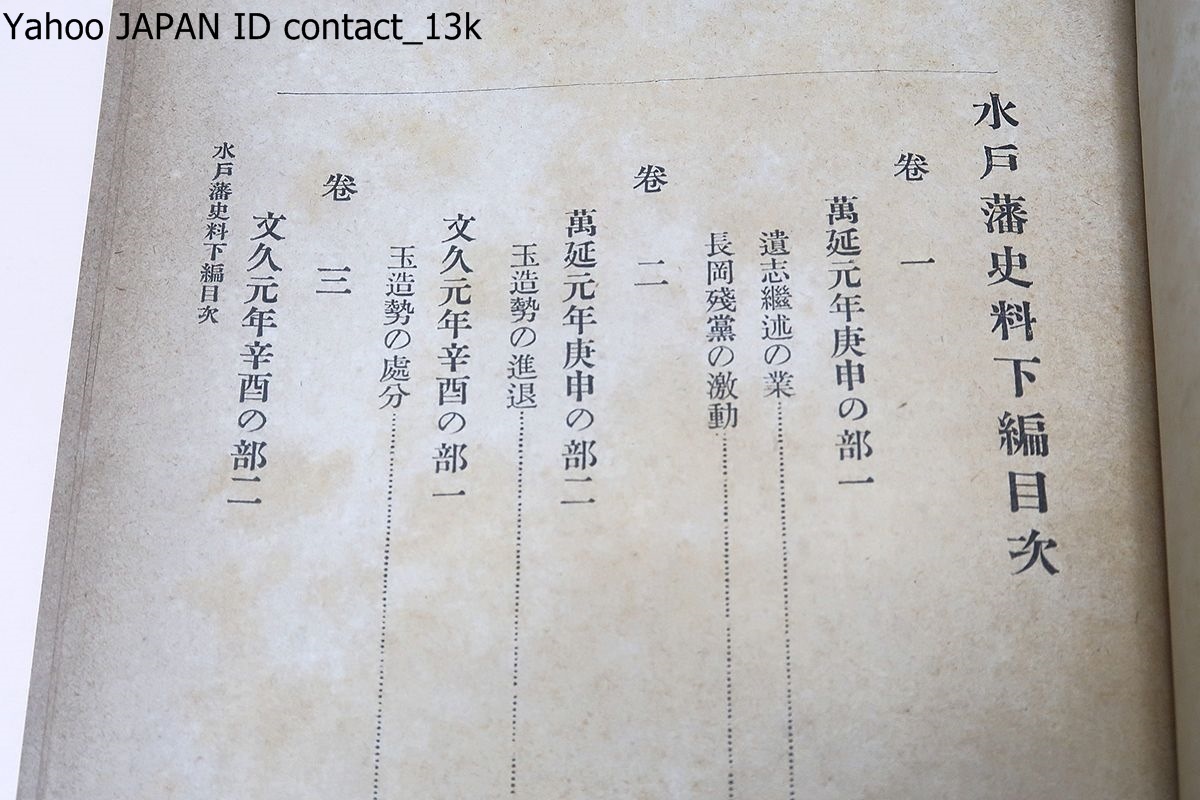 Yahoo JAPAN ID contact_13k
水戸藩史料下編目次
卷一
萬延元年庚申の部一
遺志繼述の業
長岡殘黨の激動
卷二
萬延元年庚申の部二
玉造勢の進退
文久元年辛酉の部一
玉造勢の處分
卷三
文久元年辛酉の部二
水戸藩史料下編目次